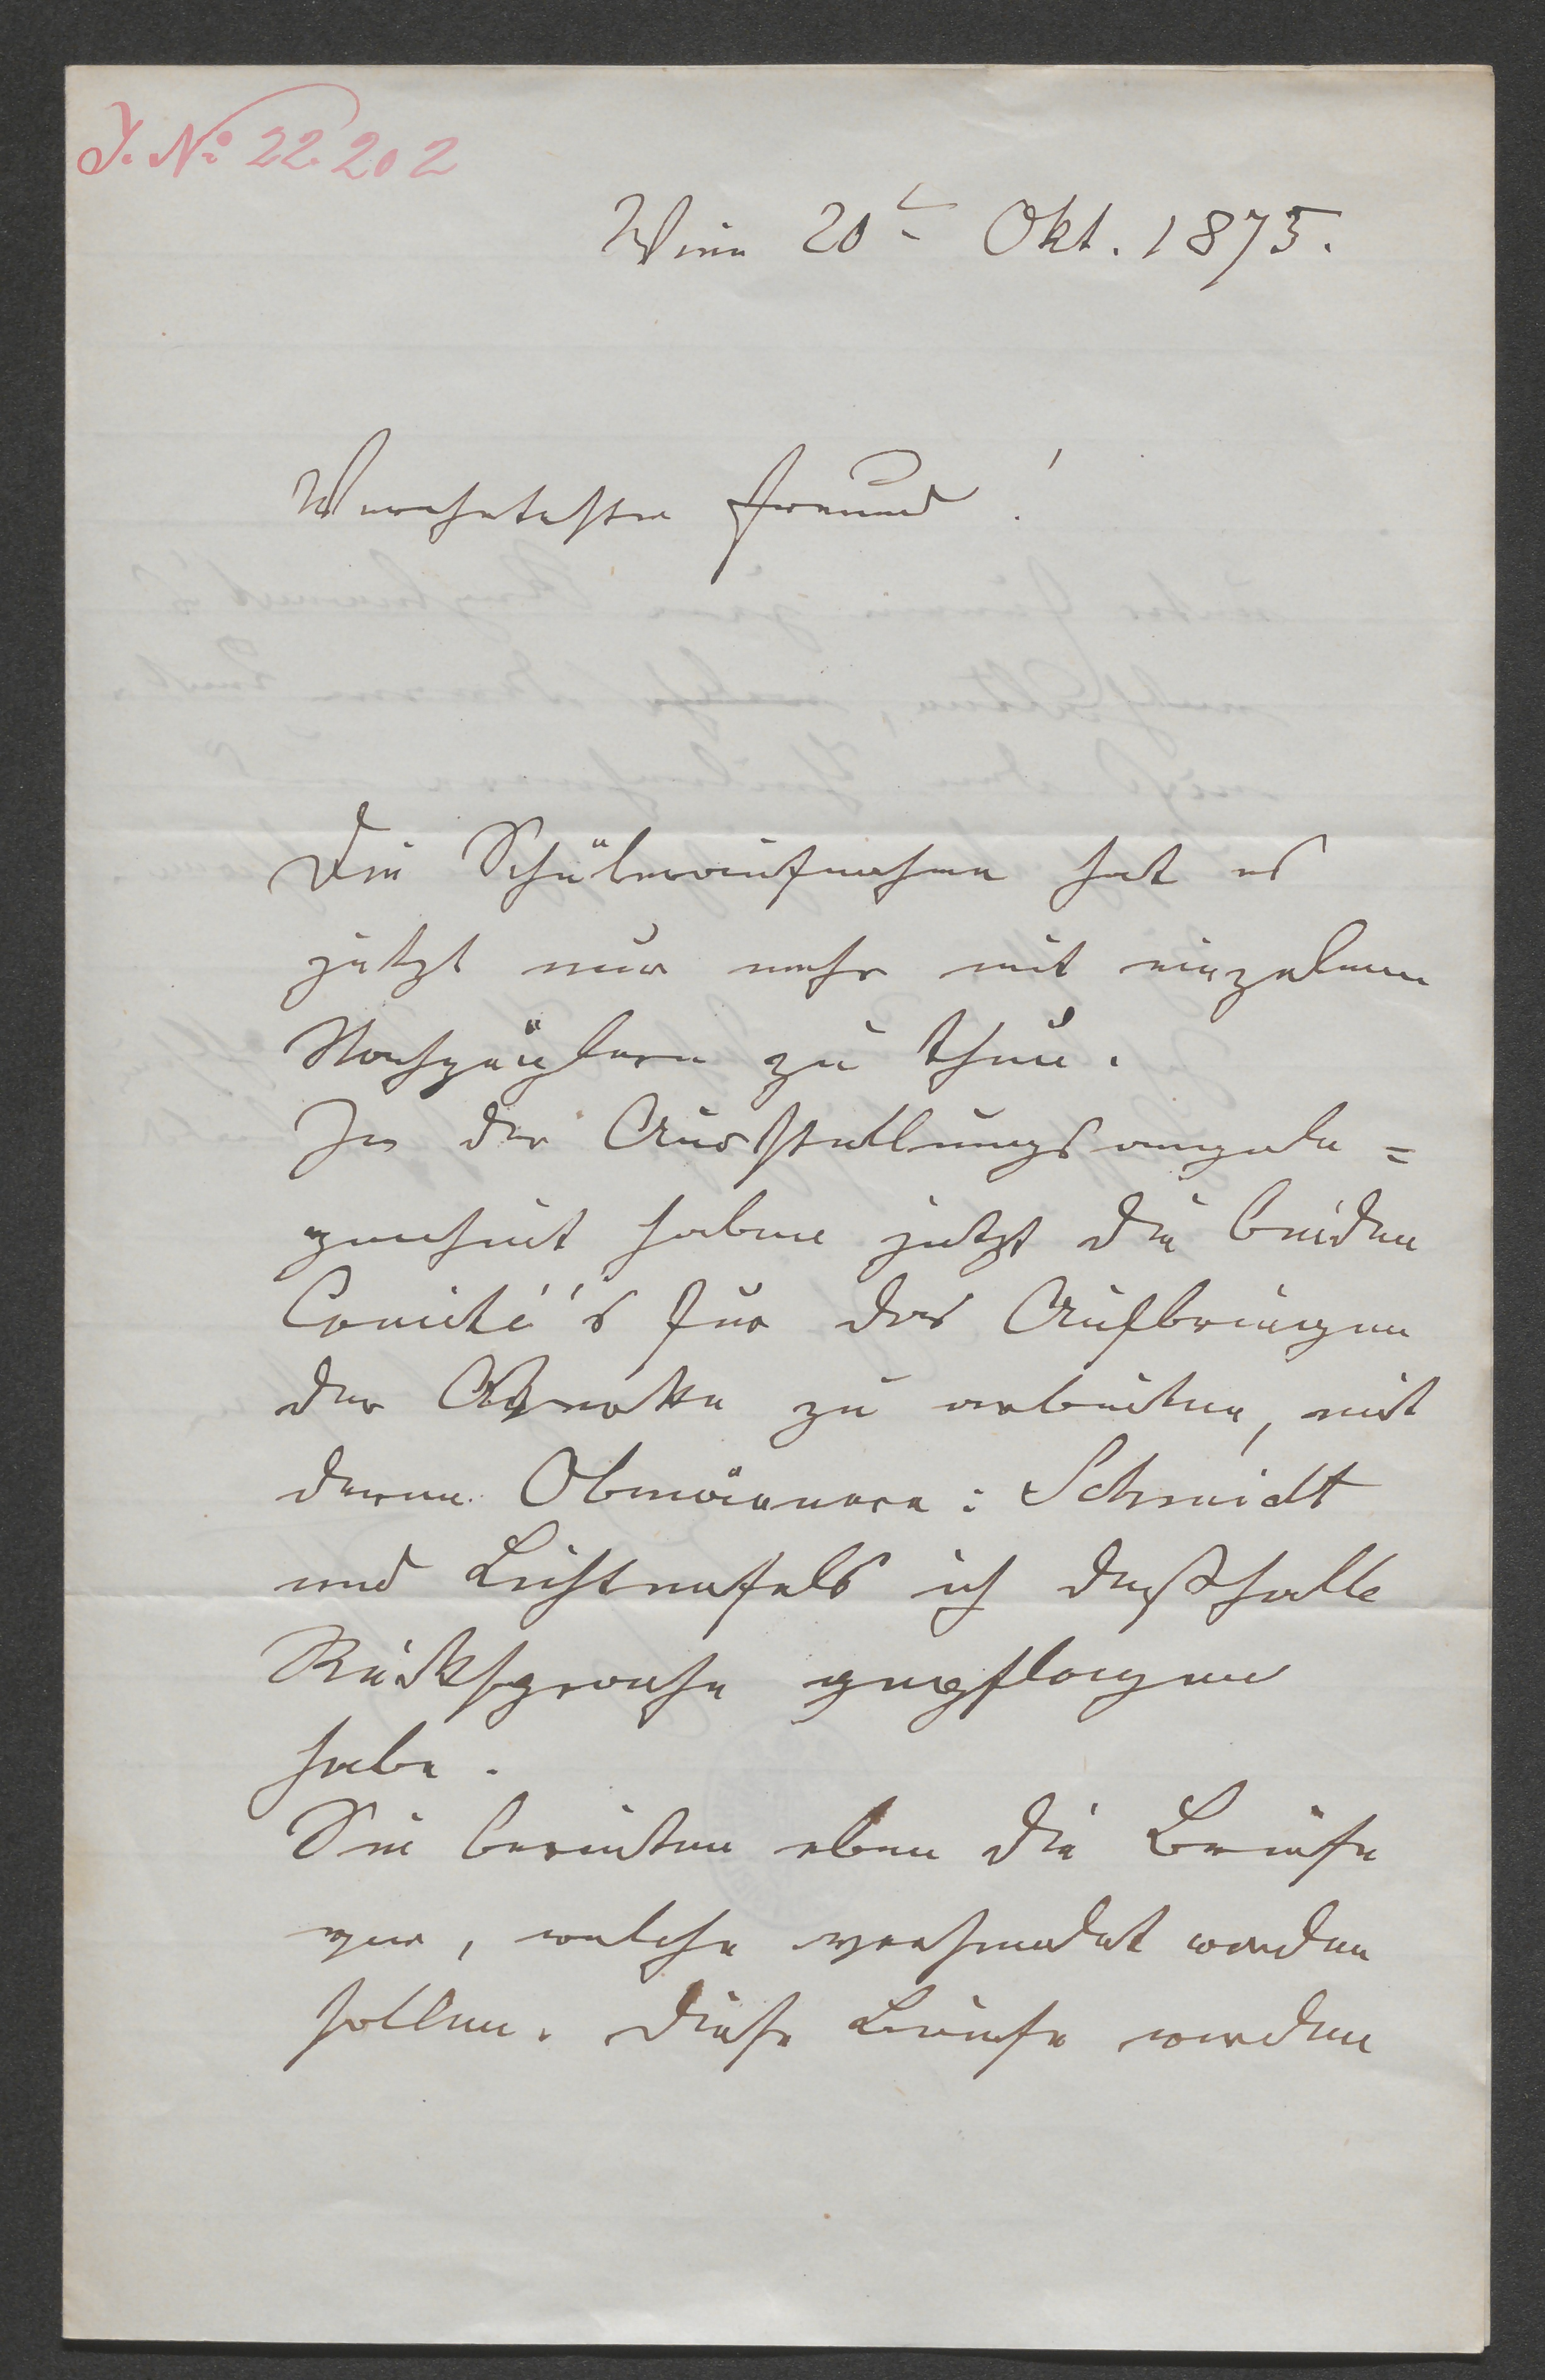 J. No 22.202
Wien 20t Okt. 1875.
Verehrtester Freund!
Die Schüleraufnahme hat es
jetzt nur mehr mit einzelnen
Nachzüglern zu thun.
In der Ausstellungsangele=
genheit haben jetzt die beiden
Comité's für das Aufbringen
der zu arbeiten, mit
deren Obmännern: Schmidt
und Lichtenfels ich deßhalb
Rücksprache gepflogen
habe.
Sie bereiten eben die Briefe
vor, welche versendet werden
sollen. Diese Briefe werden